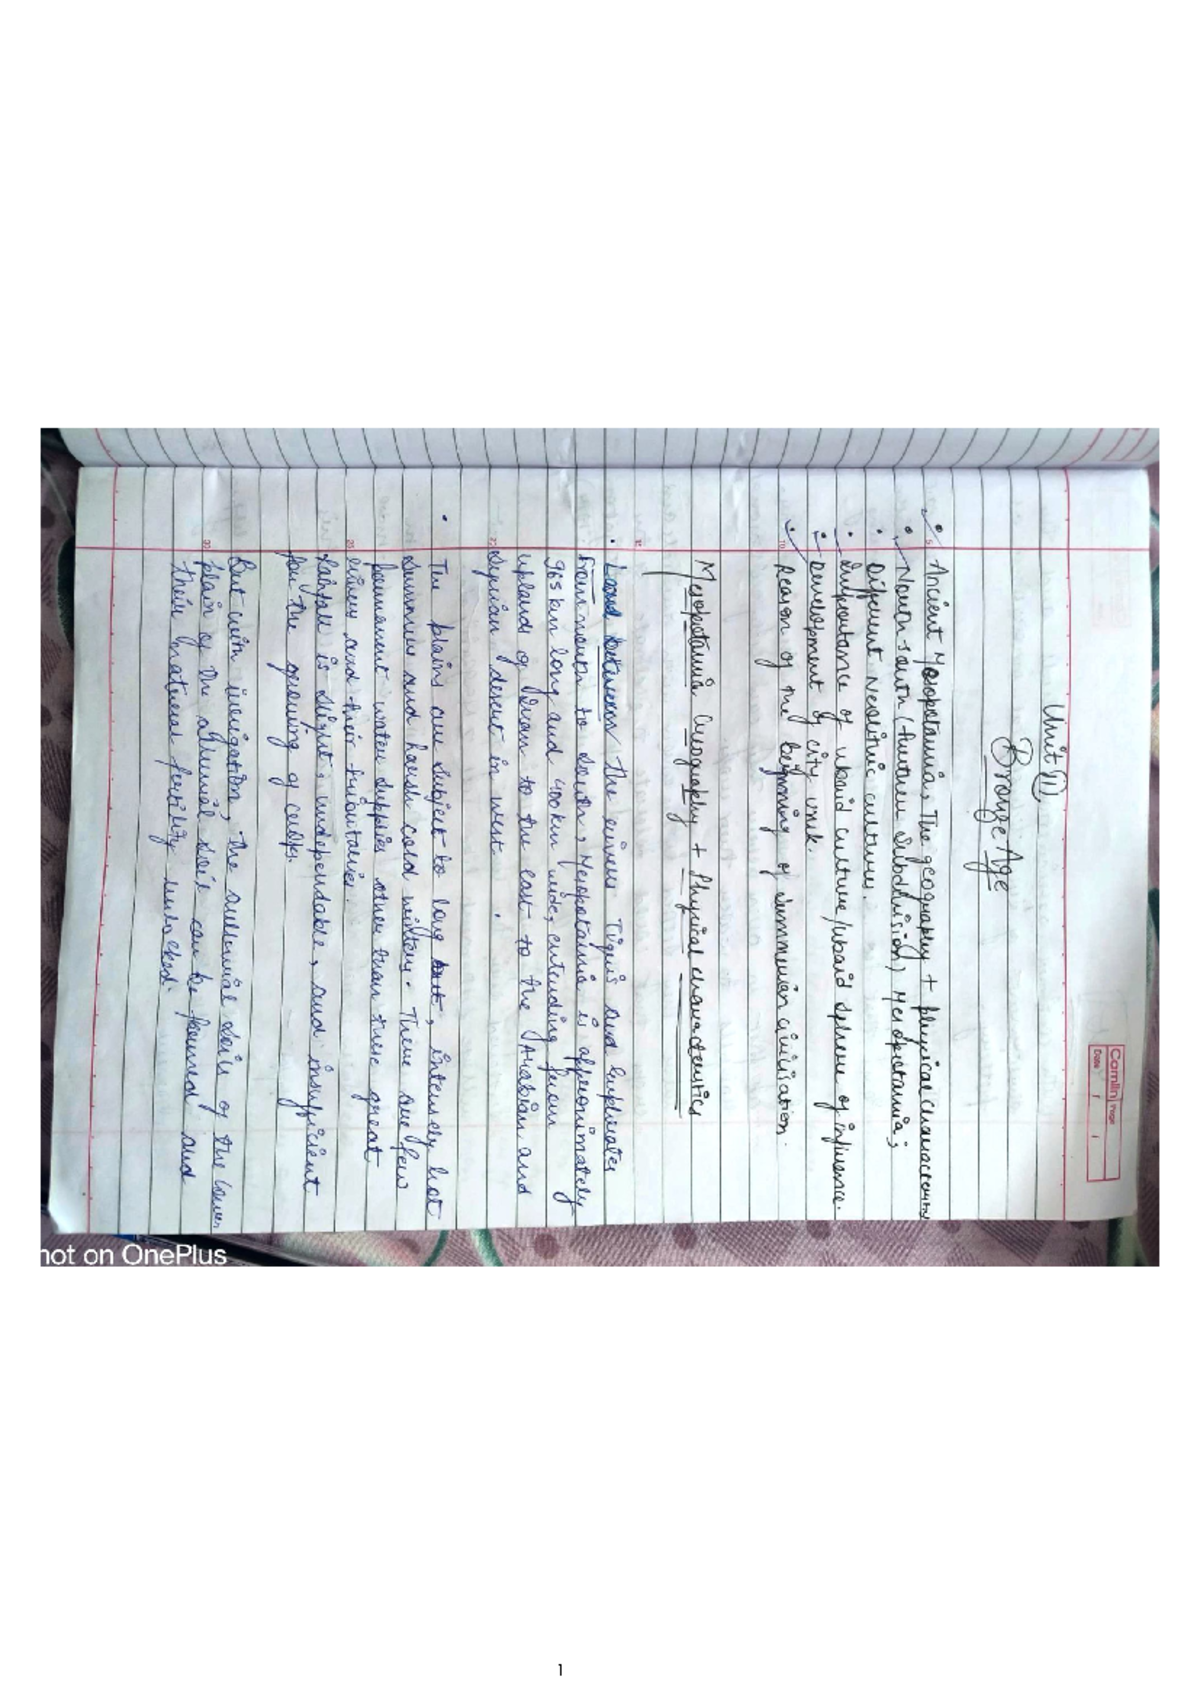 Camlin Page
Date / /
Unit (II)
Bronze Age
5 • Ancient Mesopotamia, The geography + physical characterity
• North-south (further subdivision) Mesopotamia;
• Different Neolithic cultures.
• Importance of ubaid culture/ubaid sphere of influence.
• Development of city uruk.
10 • Reason of the beginning of summerian civilisation.
Mesopotamia Geography + Physical characteristics
15
• Land between the rivers Tigris and Euphrates
from north to south, Mesopotamia is approximately
965 km long and 400 km wide, extending from
uplands of Iran to the east to the Arabian and
20 Syrian desert in west.
• The plains are subject to long, intensely hot
summers and harsh cold winters. There are few
permanent water supplies other than these great
25 rivers and their tributaries.
Rainfall is slight, undependable, and insufficient
for the growing of crops.
But with irrigation, the alluvial soils of the lower
30 plain of the alluvial soil can be farmed and
their natural fertility unlocked.
Shot on OnePlus
1